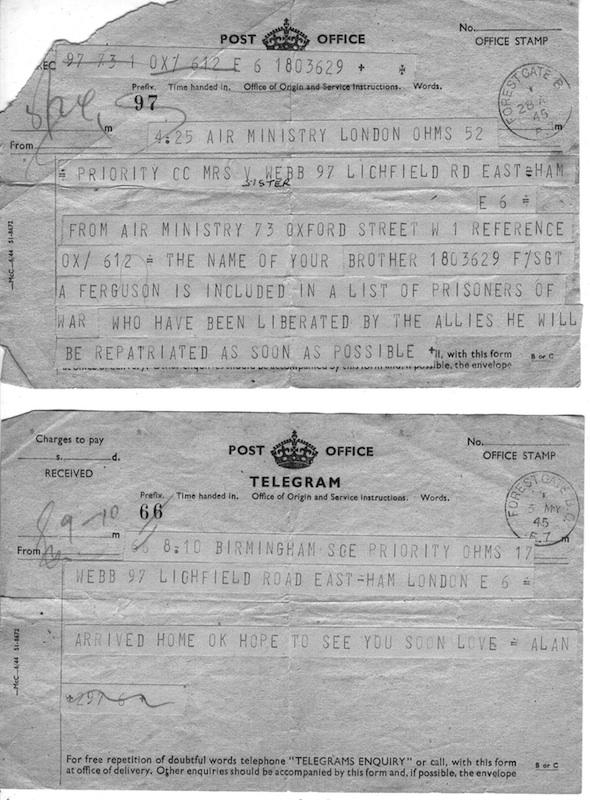 POST OFFICE
No.
OFFICE STAMP
REC 97 73 1 OX/ 612 E 6 1803629 +
Prefix. Time handed in. Office of Origin and Service Instructions. Words.
97
FOREST GATE
28
45
From
m
4.25 AIR MINISTRY LONDON OHMS 52
= PRIORITY CC MRS V WEBB 97 LICHFIELD RD EAST=HAM
SISTER
E 6 =
FROM AIR MINISTRY 73 OXFORD STREET W 1 REFERENCE
OX/ 612 = THE NAME OF YOUR BROTHER 1803629 F/SGT
A FERGUSON IS INCLUDED IN A LIST OF PRISONERS OF
WAR WHO HAVE BEEN LIBERATED BY THE ALLIES HE WILL
BE REPATRIATED AS SOON AS POSSIBLE + ll, with this form
B or C
at office of delivery. Other enquiries should be accompanied by this form and, if possible, the envelope
McC—4/44 51-8672
Charges to pay
s. d.
RECEIVED
POST OFFICE
No.
OFFICE STAMP
TELEGRAM
Prefix. Time handed in. Office of Origin and Service Instructions. Words.
66
FOREST GATE
MY
45
From
m
66 8.10 BIRMINGHAM SGE PRIORITY OHMS 17
WEBB 97 LICHFIELD ROAD EAST=HAM LONDON E 6 =
ARRIVED HOME OK HOPE TO SEE YOU SOON LOVE = ALAN
McC—4/44 51-8672
+297 6
For free repetition of doubtful words telephone "TELEGRAMS ENQUIRY" or call, with this form
at office of delivery. Other enquiries should be accompanied by this form and, if possible, the envelope
B or C